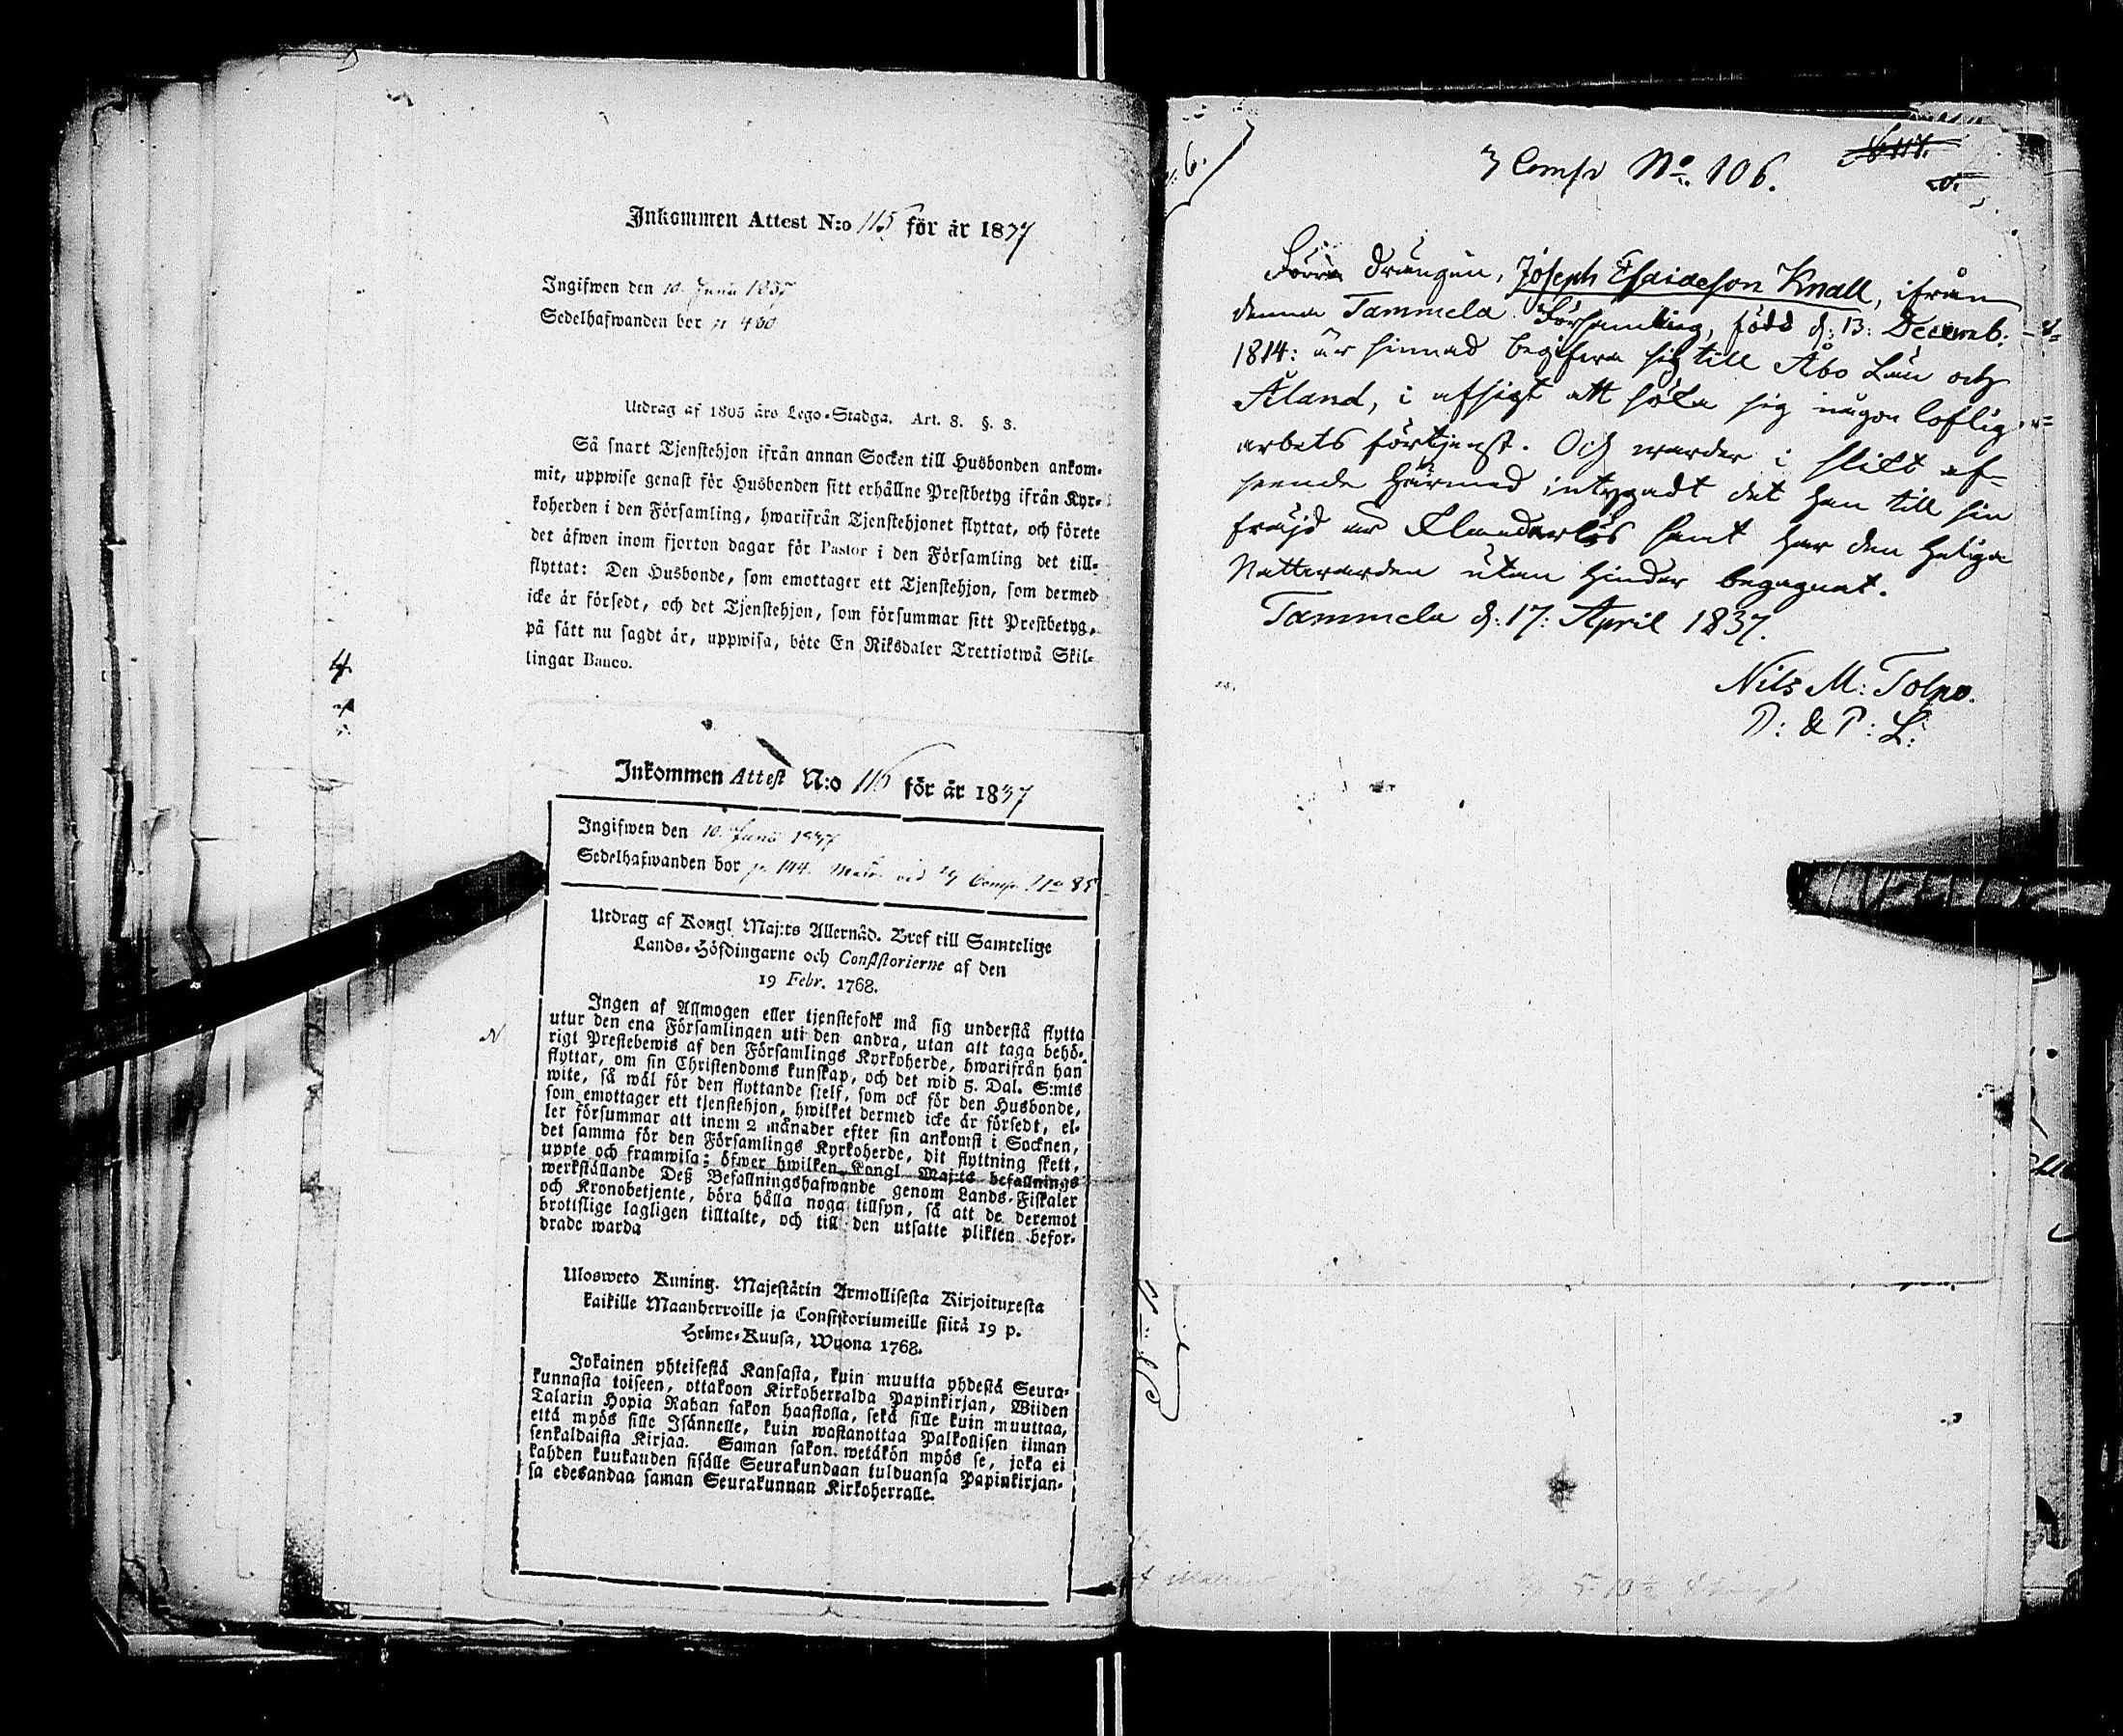 Inkommen Attest N:o 115 för år 1837
Ingifwen den 10. Junii 1837
Sedelhafwanden bor p. 460
Utdrag af 1805 års Lego-Stadga. Art. 8. §. 3.
Så snart Tjenstehjon ifrån annan Socken till Husbonden ankom-
mit, uppwise genast för Husbonden sitt erhållne Prestbetyg ifrån Kyr-
koherden i den Församling, hwarifrån Tjenstehjonet flyttat, och förete
det äfwen inom fjorton dagar för Pastor i den Församling det till-
flyttat: Den Husbonde, som emottager ett Tjenstehjon, som dermed
icke är försedt, och det Tjenstehjon, som försummar sitt Prestbetyg,
på sätt nu sagdt är, uppwisa, böte En Riksdaler Trettiotwå Skil-
lingar Banco.
Inkommen Attest N:o 116 för år 1837
Ingifwen den 10. Junii 1837
Sedelhafwanden bor p. 144. vid Comp. No 85
Utdrag af Kongl Maj:ts Allernåd. Bref till Samtelige
Lands-Höfdingarne och Consistorierne af den
19 Febr. 1768.
Ingen af Allmogen eller tjenstefolk må sig understå flytta
utur den ena Församlingen uti den andra, utan att taga behö-
rigt Prestebewis af den Församlings Kyrkoherde, hwarifrån han
flyttar, om sin Christendoms kunskap, och det wid 5. Dal. S:mts
wite, så wäl för den flyttande sielf, som ock för den Husbonde,
som emottager ett tjenstehjon, hwilket dermed icke är försedt, el-
ler försummar att inom 2 månader efter sin ankomst i Socknen,
det samma för den Församlings Kyrkoherde, dit flyttning skett,
uppte och framwisa; öfwer hwilken Kongl Maj:ts befallnings
werkställande Deß Befallningshafwande genom Lands-Fiskaler
och Kronobetjente, böra hålla noga tillsyn, så att de deremot
brottslige lagligen tilltalte, och till den utsatte plikten befor-
drade warda
Ulosweto Kuning. Majestätin Armollisesta Kirjoituxesta
kaikille Maanherroille ja Consistoriumeille siitä 19 p.
Helme-Kuusa, Wuona 1768.
Jokainen yhteisestä Kansasta, kuin muutta yhdestä Seura-
kunnasta toiseen, ottakoon Kirkoherralda Papinkirjan, Wiiden
Talarin Hopia Rahan sakon haastolla, sekä sille kuin muuttaa,
että myös sille Isännelle, kuin wastanottaa Palkollisen ilman
senkaldaista Kirjaa. Saman sakon wetäkön myös se, joka ei
kahden kuukauden sisälle Seurakundaan tulduansa Papinkirjan-
sa edesandaa saman Seurakunnan Kirkoherralle.
3 Comp No 106.
Förra Drängen, Joseph Esaiaeson Knall, ifrån
denna Tammela Församling, född d: 13: Decemb:
1814: är sinnad begifwa sig till Åbo Län och
Åland, i afsigt att söka sig någon loflig
arbets förtjenst. Och warder i slikt af-
seende härmed intygadt det han till sin
fräjd är Klanderlös samt har den Heliga
Nattwarden utan hinder begagnat.
Tammela d: 17: April 1837.
Nils M: Tolpo.
P: & P: L: